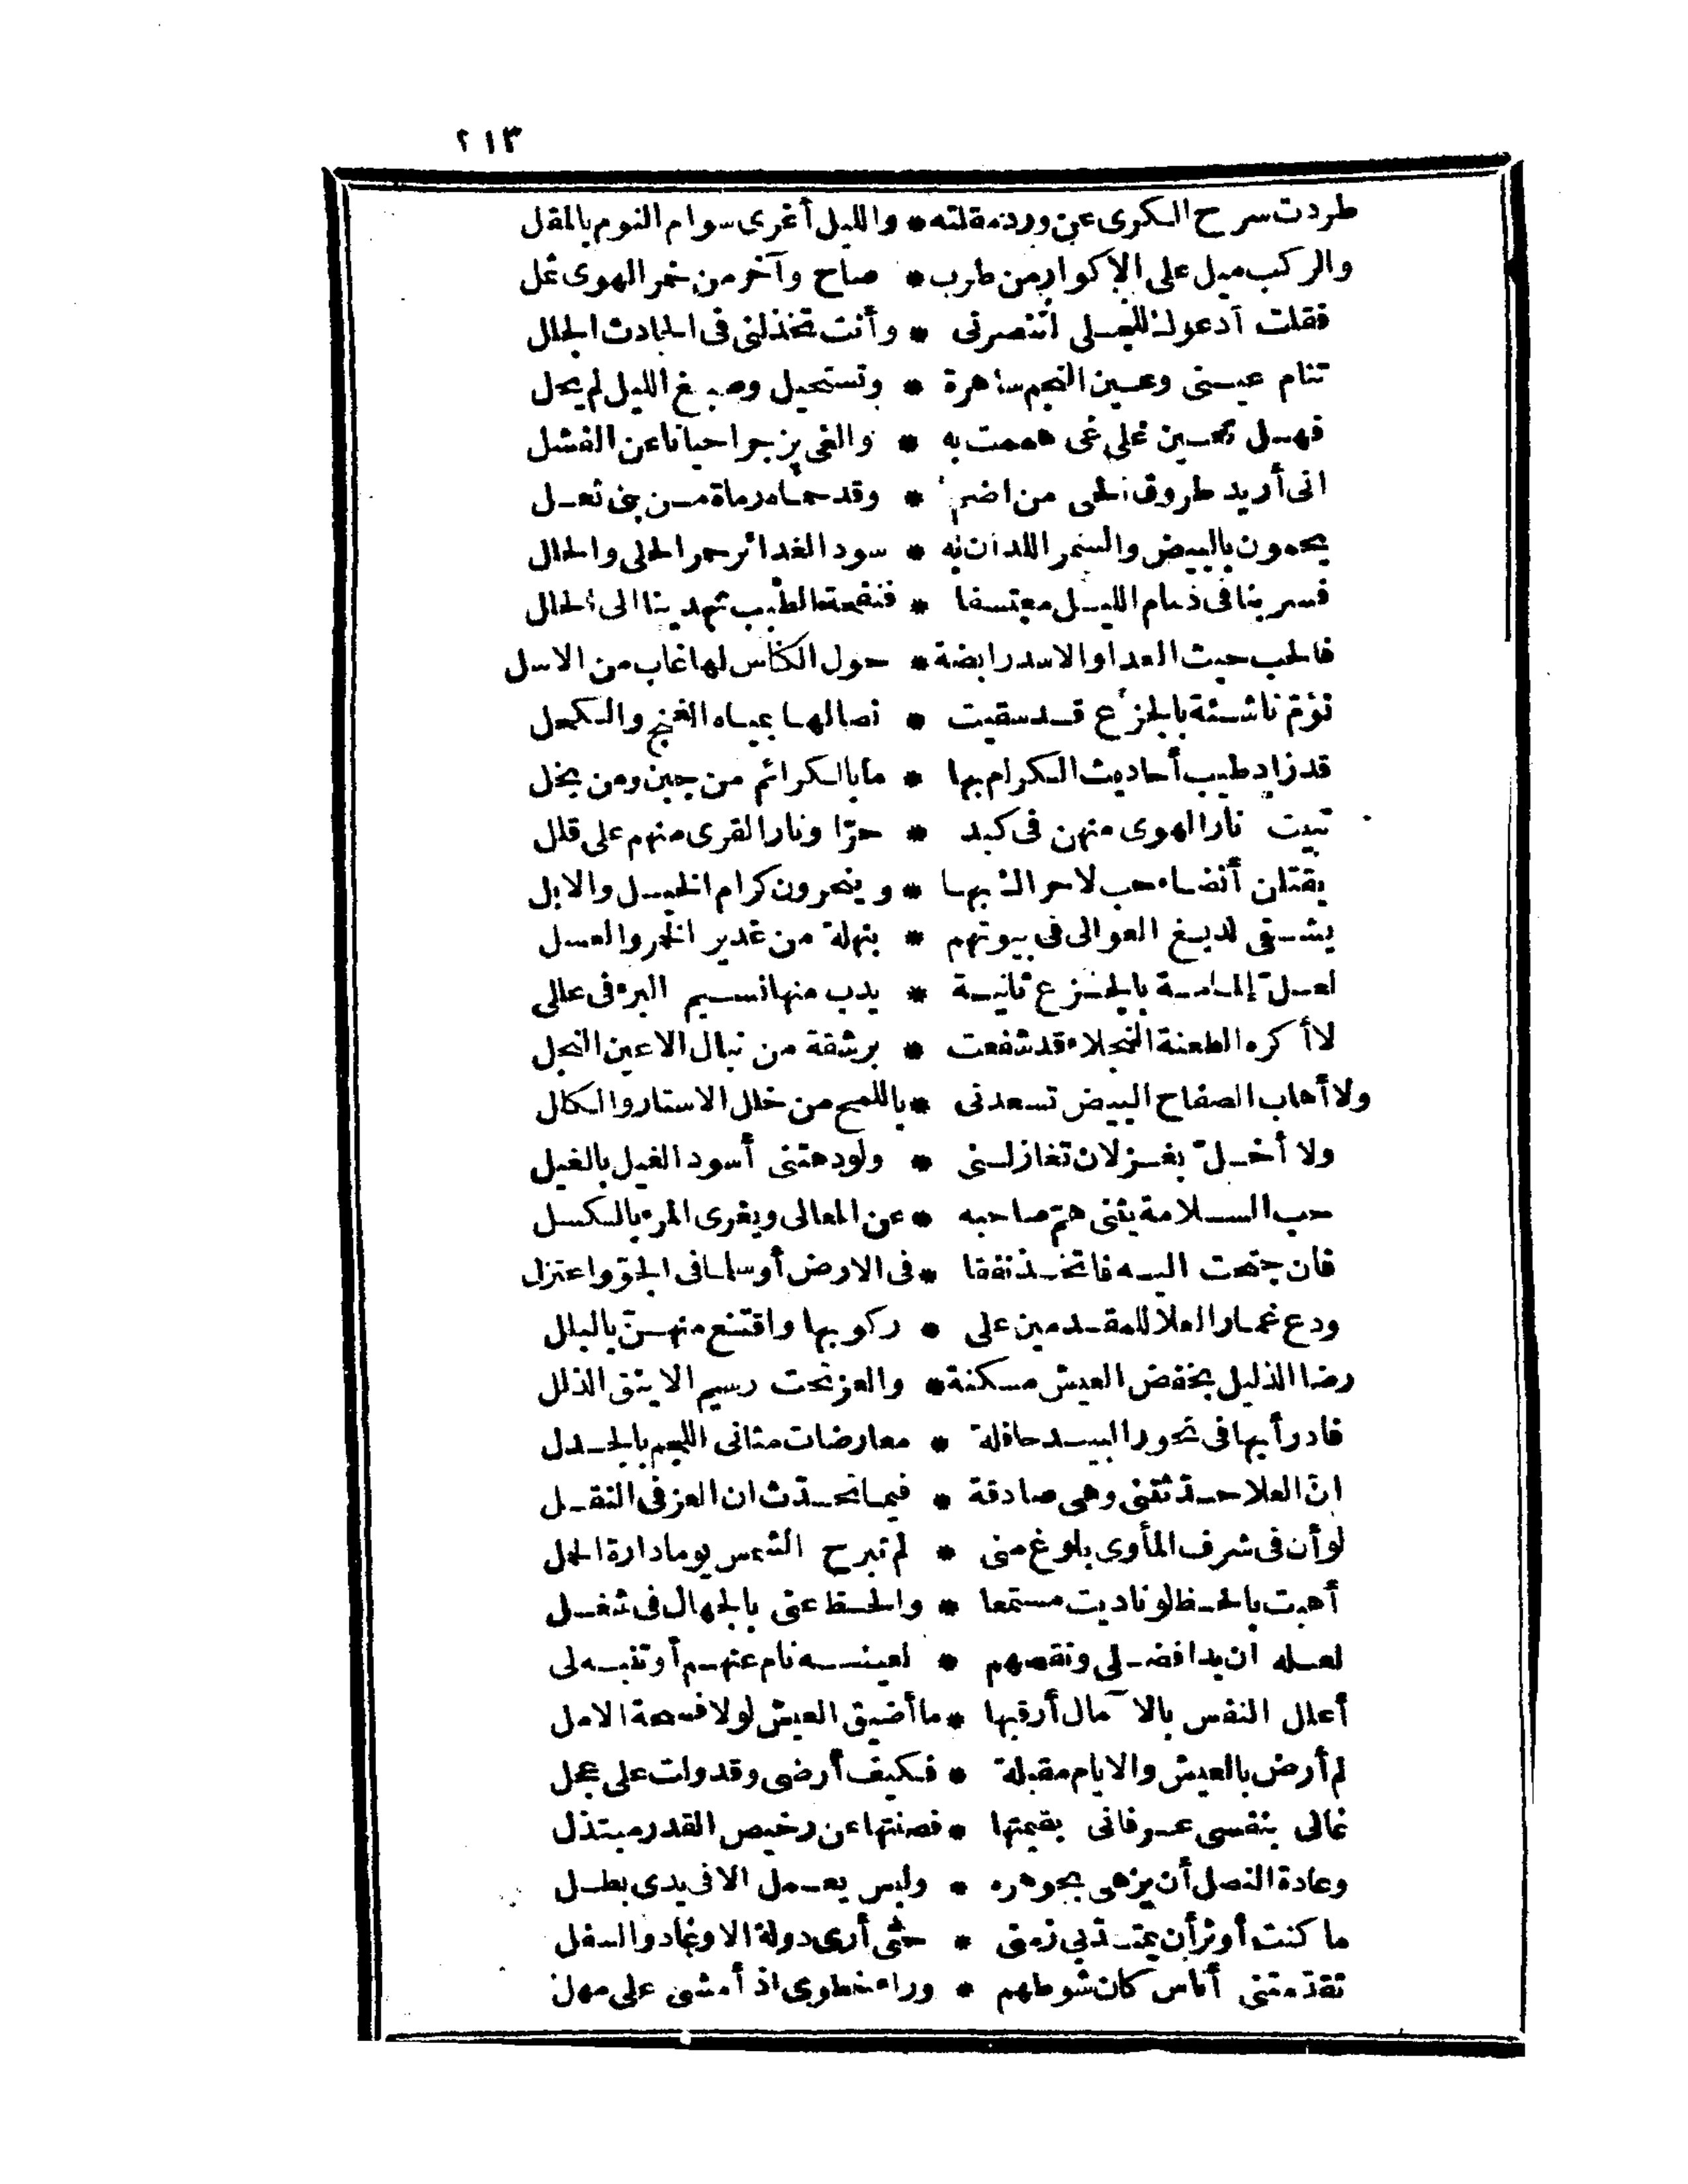 ٢١٣
طردت سرح الكرى عن ورد مقلته * والليل أغرى سوام النوم بالمقل
والركب ميل على الاكوار من طرب * صاح وآخر من خمر الهوى ثمل
فقلت أدعوك للجلى لتنصرنى * وأنت تخذلنى فى الحادث الجلل
تنام عينى وعين النجم ساهرة * وتستحيل وصبغ الليل لم يحل
فهل تعين على غى هممت به * والغى يزجر احيانا عن الفشل
انى أريد طروق الحى من اضم * وقد حماه رماة من بنى ثعل
يحمون بالبيض والسمر اللدان به * سود الغدائر حمر الحلى والحلل
فسر بنا فى ذمام الليل معتسفا * فنفحة الطيب تهدينا الى الحلل
فالحب حيث العدا والاسد رابضة * حول الكناس لها غاب من الاسل
نؤم ناشئة بالجزع قد سقيت * نصالها بمياه الغنج والكحل
قد زاد طيب أحاديث الكرام بها * ما بالكرائم من جبن ومن بخل
تبيت نار الهوى منهن فى كبد * حرّا ونار القرى منهم على قلل
يقتلن أنضاء حب لا حراك بها * وينحرون كرام الخيل والابل
يشفى لديغ العوالى فى بيوتهم * بنهلة من غدير الخمر والعسل
لعلّ إلمامة بالجزع ثانية * يدب منها نسيم البرء فى عللى
لا أكره الطعنة النجلاء قد شفعت * برشقة من نبال الاعين النجل
ولا أهاب الصفاح البيض تسعدنى * باللمح من خلل الاستار والكلل
ولا أخلّ بغزلان تغازلنى * ولو دهتنى أسود الغيل بالغيل
حب السلامة يثنى همّ صاحبه * عن المعالى ويغرى المرء بالكسل
فان جنحت اليه فاتخذ نفقا * فى الارض أو سلما فى الجوّ واعتزل
ودع غمار العلا للمقدمين على * ركوبها واقتنع منهنّ بالبلل
رضا الذليل بخفض العيش مسكنة * والعز تحت رسيم الاينق الذلل
فادرأ بها فى نحور البيد حافلة * معارضات مثانى اللجم بالجدل
انّ العلا حدّثتنى وهى صادقة * فيما تحدّث ان العز فى النقل
لو أن فى شرف المأوى بلوغ منى * لم تبرح الشمس يوما دارة الحمل
أهبت بالحظ لو ناديت مستمعا * والحظ عنى بالجهال فى شغل
لعله ان بدا فضلى ونقصهم * لعينه نام عنهم أو تنبه لى
أعلل النفس بالآمال أرقبها * ما أضيق العيش لولا فسحة الامل
لم أرض بالعيش والايام مقبلة * فكيف أرضى وقد ولت على عجل
غالى بنفسى عرفانى بقيمتها * فصنتها عن رخيص القدر مبتذل
وعادة النصل أن يزهى بجوهره * وليس يعمل الا فى يدى بطل
ما كنت أوثر أن يمتدّ بى زمنى * حتى أرى دولة الاوغاد والسفل
تقدّمتنى أناس كان شوطهم * وراء خطوى اذ أمشى على مهل